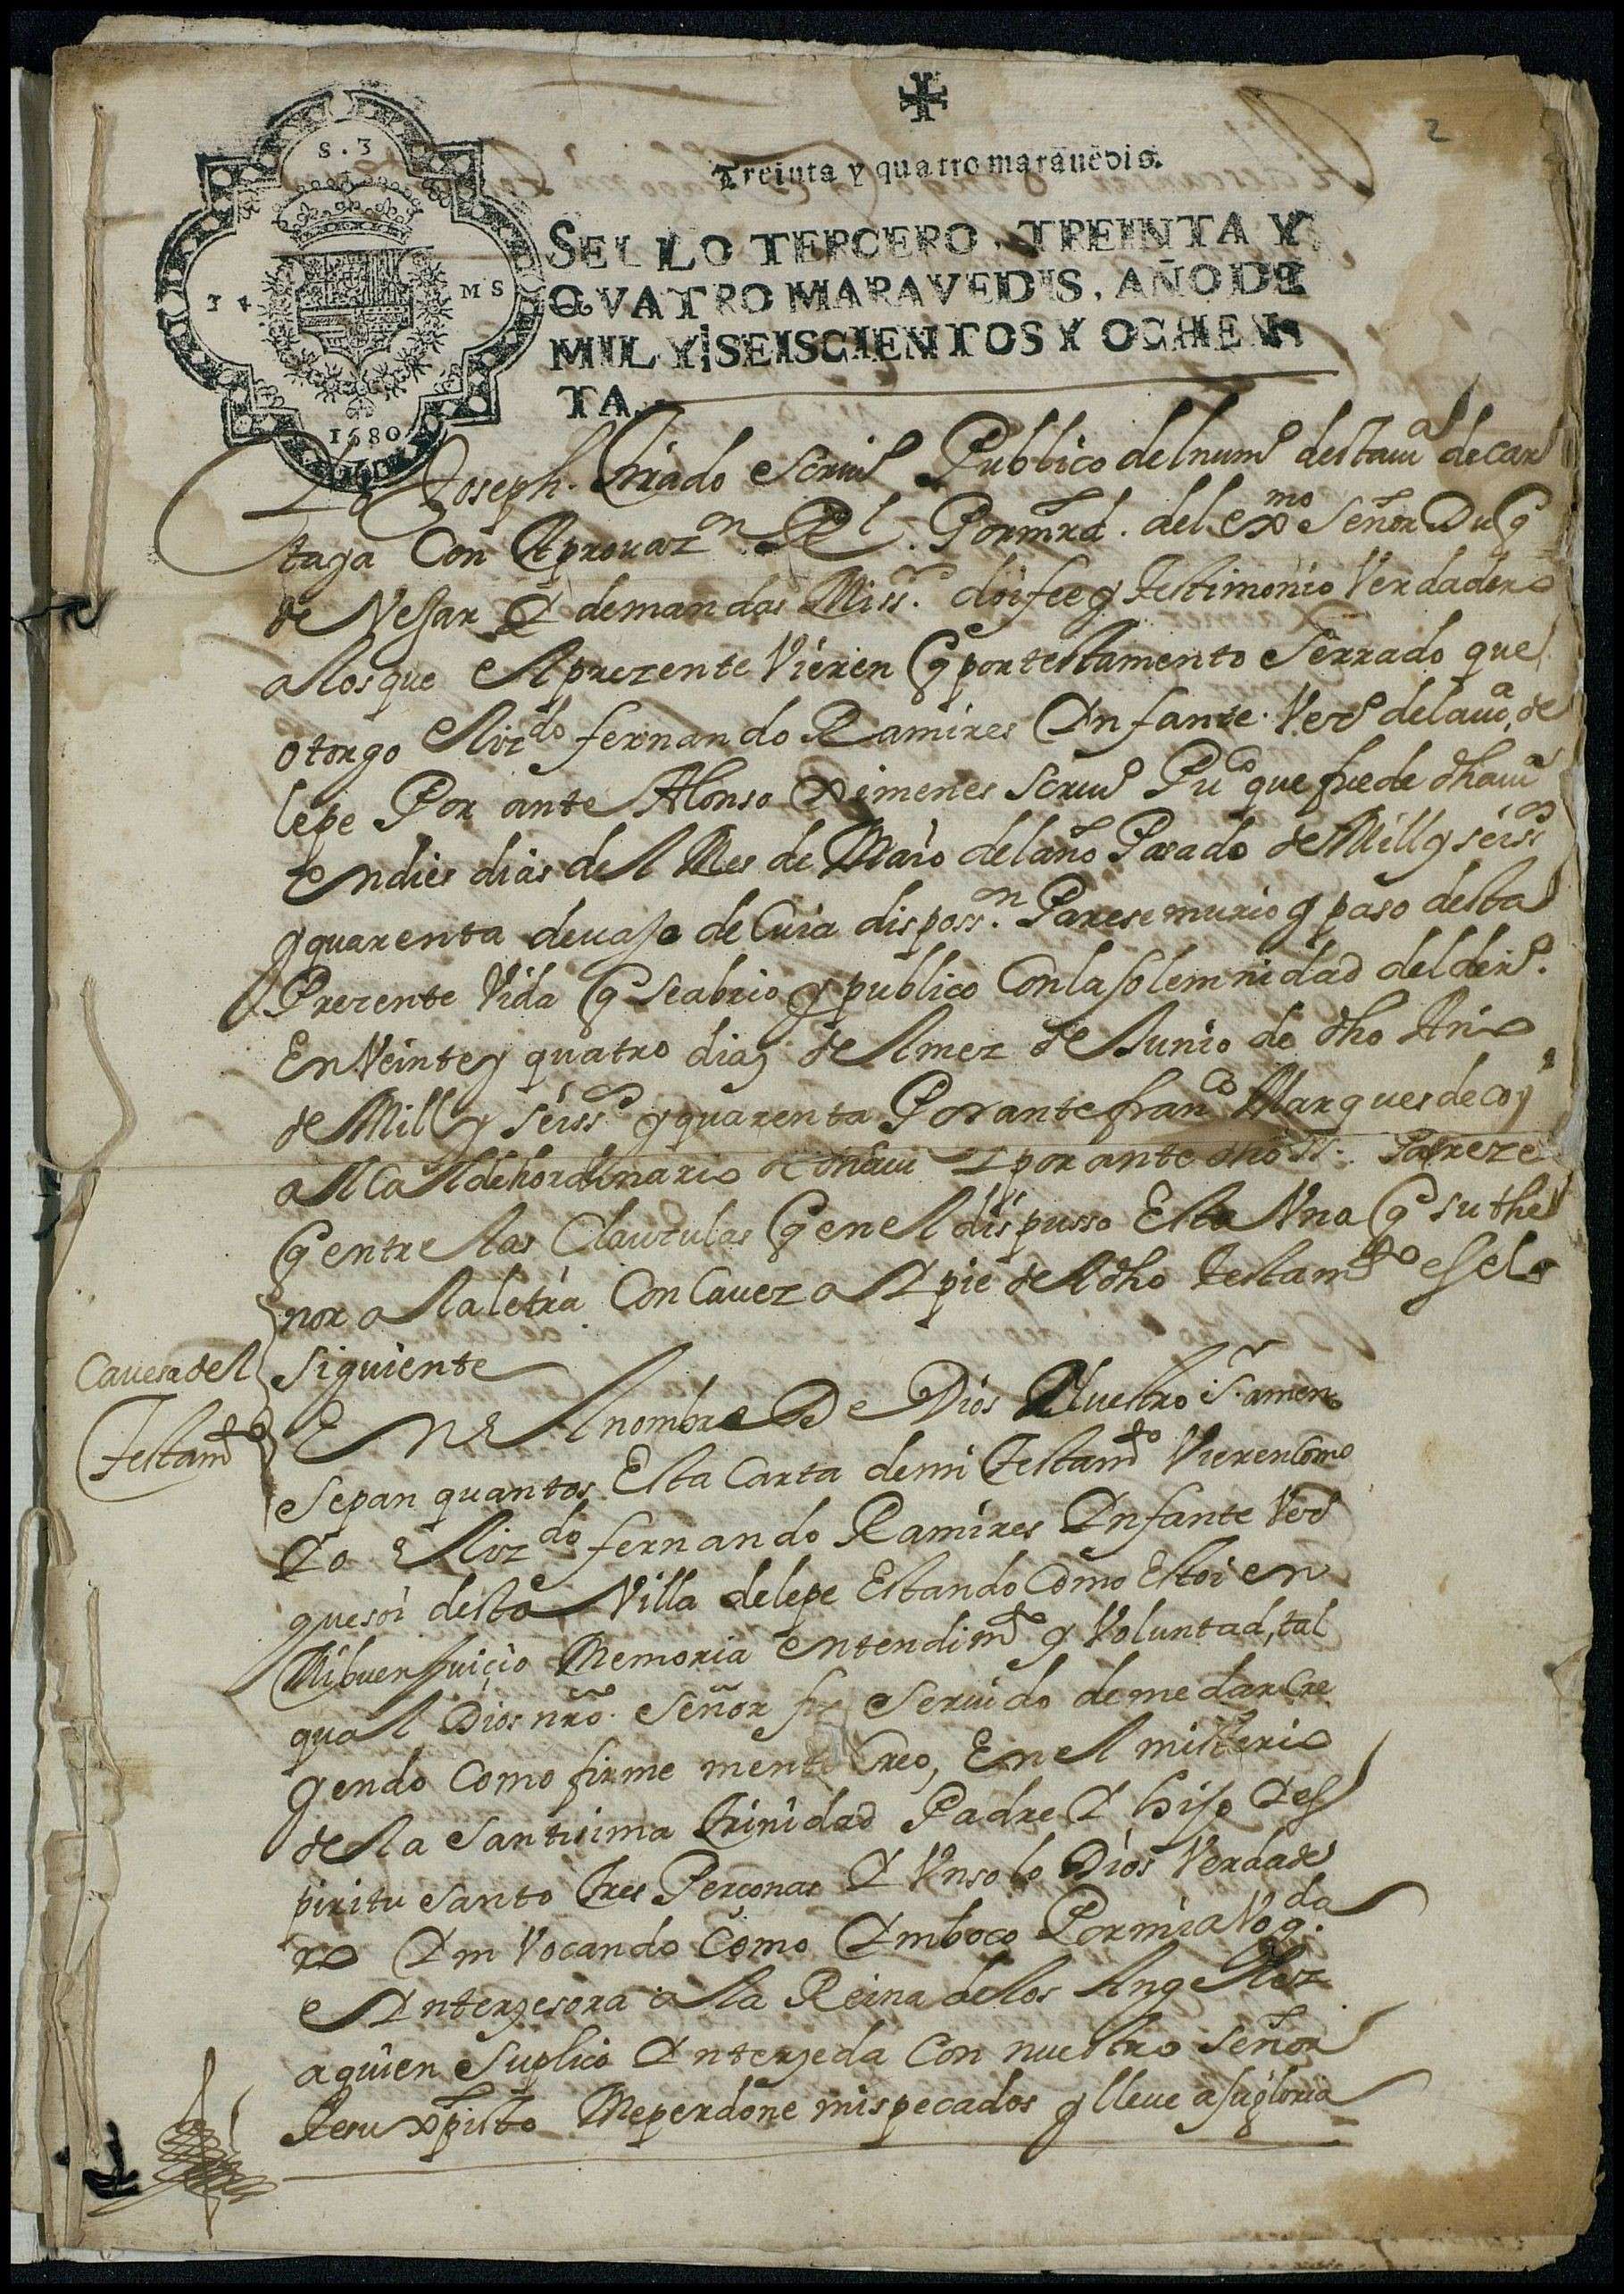 2
Treinta y quatro marauedis.
S. 3
34 MS
1680
SELLO TERCERO, TREINTA Y
QVATRO MARAVEDIS, AÑO DE
MIL Y SEISCIENTOS Y OCHEN
TA.
Yo Joseph tirado escriuº Publico del numº desta uª de car
taya Con Aprouazon Rl. Por mrd. del exmo Señor Duq
de Vejar Y de mandas Miss. doi fee y Testimonio Verdadero
a los que el prezente Vieren q por testamento Serrado que
otorgo el lizdo fernando Ramires Ynfante. Vezº de la uª de
lepe Por ante Alonso Ximenes scriuº Puco que fue de dha uª
en dies dias del Mes de Maio del año Pasado de Mill y seissos
y quarenta devajo de Cuia disposson Parese murio y paso desta
Prezente Vida q se abrio y publico Con la solemnidad del derº.
En Veinte y quatro dias del mez de Junio de dho Año
de Mill y seissos y quarenta Por ante franco Marques de
alCalde hordinario Y por ante dho ss. Pareze
q entre las Clausulas q en el dispusso Esta Vna q su the
nor a la letra Con Caueza Y pie del dho testamto es el
siguiente
Cauesa del
Testamto
En El nombre De Dios Nuestro Sr. amen
Sepan quantos Esta Carta de mi Testamto Vieren Como
Yo El lizdo fernando Ramires Ynfante Vezº
que soi desta Villa de lepe Estando Como Estoi en
Mi buen juiçio Memoria entendimto y Voluntad, tal
qual Dios nro. Señor fue seruido de me dar Cre
yendo Como firme mente Creo, En el misterio
de la Santisima trinidad Padre Y hijo Y es
piritu santo tres Perçonas Y Vn solo Dios Verdade
ro Ynvocando Como Ymboco Por mi aVogda.
e Ynterzesora a la Reina de los Angeles
a quien Suplico Ynterzeda Con nuestro señor
Jesu xpisto Me perdone mis pecados y lleue a su gloria